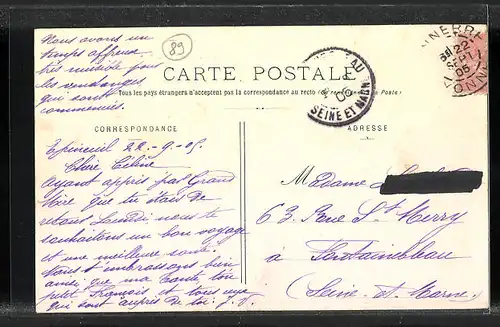 Nous avons un
temps affreux
très nuisible pour
les vendanges
qui sont
commencées.
89
CARTE POSTALE
Tous les pays étrangers n'acceptent pas la correspondance au recto
SEINE ET MARN
22
SEPT
05
CORRESPONDANCE
ADRESSE
Epineuil 22-9-05.
Chère Céline
ayant appris par Grand
Mère que tu étais de
retour Lundi nous te
souhaitons un bon voyage
et une meilleure santé.
Nous t'embrassons bien
ainsi que ma tante ton
petit Français et tous ceux
qui sont auprès de toi.
Madame
63 Rue St Merry
à Fontainebleau
(Seine-et-Marne)